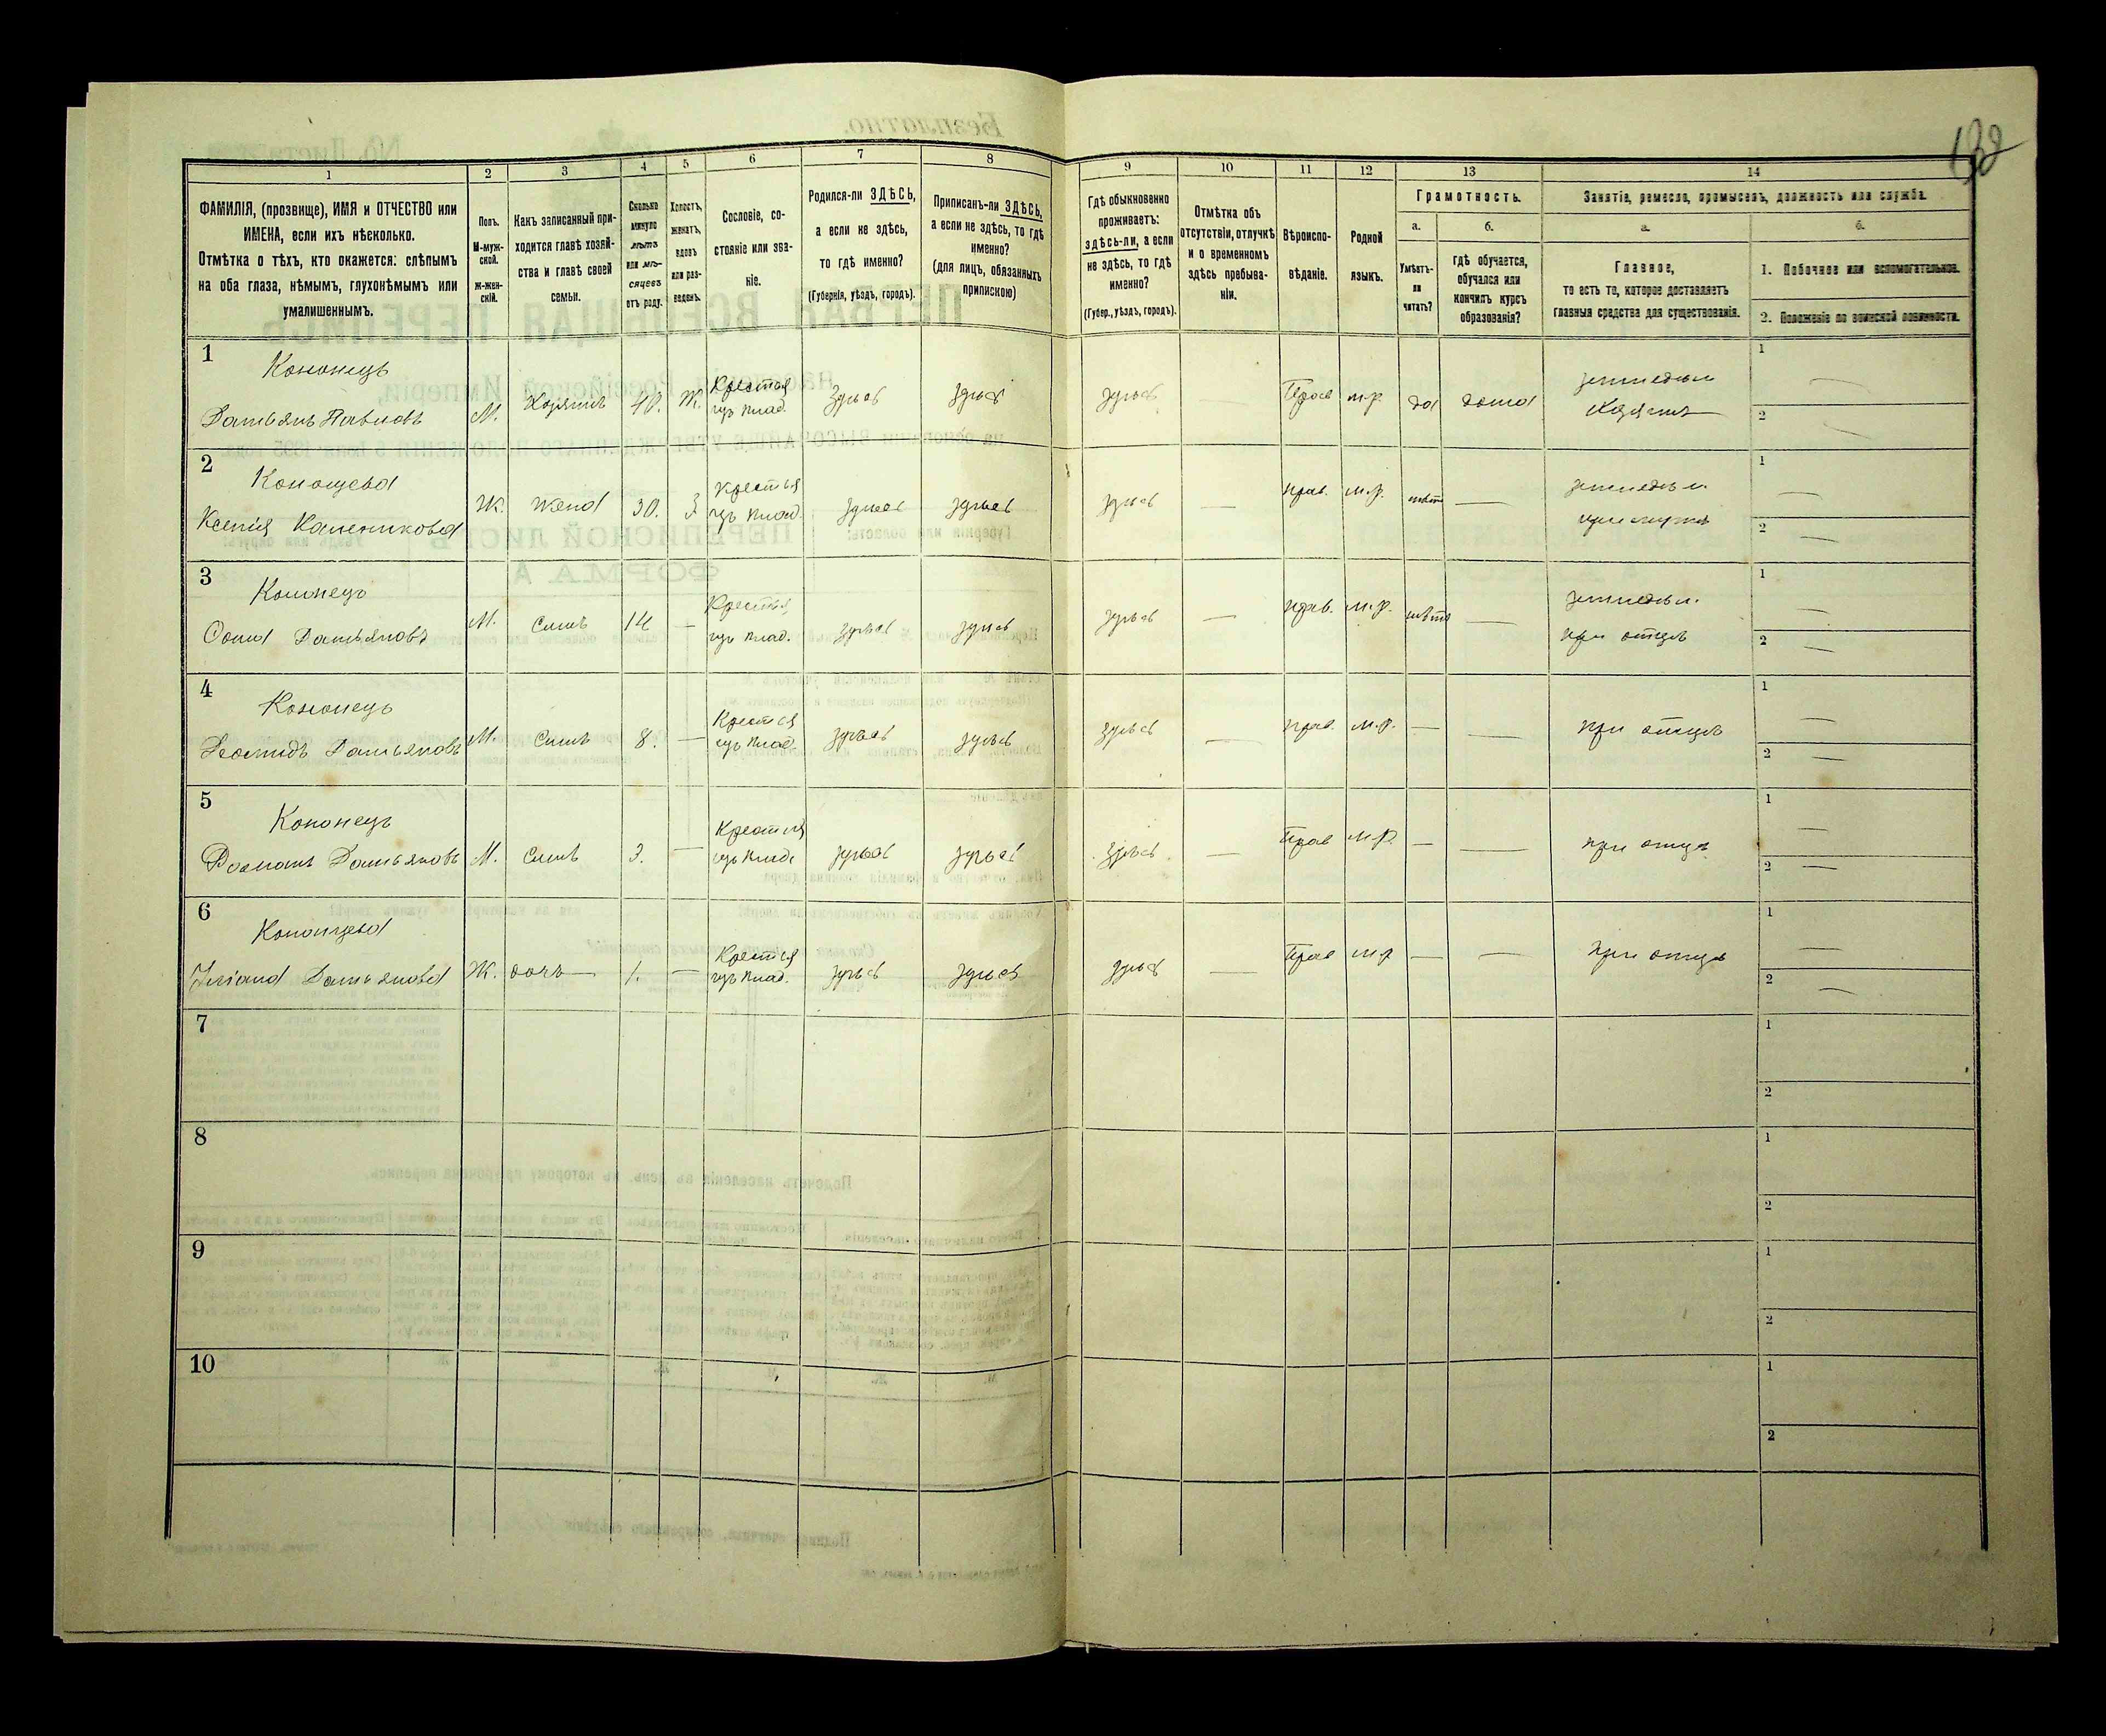 132
1
2
3
4
5
6
7
8
9
10
11
12
13
14
ФАМИЛІЯ, (прозвище), ИМЯ и ОТЧЕСТВО или
ИМЕНА, если ихъ нѣсколько.
Отмѣтка о тѣхъ, кто окажется: слѣпымъ
на оба глаза, нѣмымъ, глухонѣмымъ или
умалишеннымъ.
Полъ.
М-муж-
ской.
Ж-жен-
скій.
Какъ записанный при-
ходится главѣ хозяй-
ства и главѣ своей
семьи.
Сколько
минуло
лѣтъ
или мѣ-
сяцевъ
отъ роду.
Холостъ,
женатъ,
вдовъ
или раз-
веденъ.
Сословіе, со-
стояніе или зва-
ніе.
Родился-ли ЗДѢСЬ,
а если не здѣсь,
то гдѣ именно?
(Губернія, уѣздъ, городъ).
Приписанъ-ли ЗДѢСЬ,
а если не здѣсь, то гдѣ
именно?
(для лицъ, обязанныхъ
припискою)
Гдѣ обыкновенно
проживаетъ:
здѣсь-ли, а если
не здѣсь, то гдѣ
именно?
(Губер., уѣздъ, городъ).
Отмѣтка объ
отсутствіи, отлучкѣ
и о временномъ
здѣсь пребыва-
ніи.
Вѣроиспо-
вѣданіе.
Родной
языкъ.
Грамотность.
а.
Умѣетъ-
ли
читать?
б.
гдѣ обучается,
обучался или
кончилъ курсъ
образованія?
Занятіе, ремесло, промыселъ, должность или служба.
а.
Главное,
то есть то, которое доставляетъ
главныя средства для существованія.
б.
1. Побочное или вспомогательное.
2. Положеніе по воинской повинности.
1
Кононецъ
Дамьянъ Павловъ
М. Хозяинъ 40. Ж. Крестья изъ влад. здѣсь здѣсь здѣсь — Прав м.р. да дома земледѣл. хозяинъ
1 —
2 —
2
Кононцева
Ксенія Каленикова
Ж. жена 30. З Крестья изъ влад. здѣсь здѣсь здѣсь — прав. м.р. нѣтъ — земледѣл. при мужѣ
1 —
2 —
3
Кононецъ
Фома Дамьяновъ
М. Сынъ 14 — Крестья изъ влад. здѣсь здѣсь здѣсь — прав. м.р. нѣтъ — земледѣл. при отцѣ
1 —
2 —
4
Кононецъ
Леонидъ Дамьяновъ
М. Сынъ 8. — Крестья изъ влад. здѣсь здѣсь здѣсь — прав. м.р. — — при отцѣ
1 —
2 —
5
Кононецъ
Романъ Дамьяновъ
М. Сынъ 3. — Крестья изъ влад. здѣсь здѣсь здѣсь — Прав м.р. — — при отцѣ
1 —
2 —
6
Кононцева
Дамьянова
Ж. дочь — 1. — Крестья изъ влад. здѣсь здѣсь здѣсь — Прав м.р — — при отцѣ
1 —
2 —
7
1
2
8
1
2
9
1
2
10
1
2